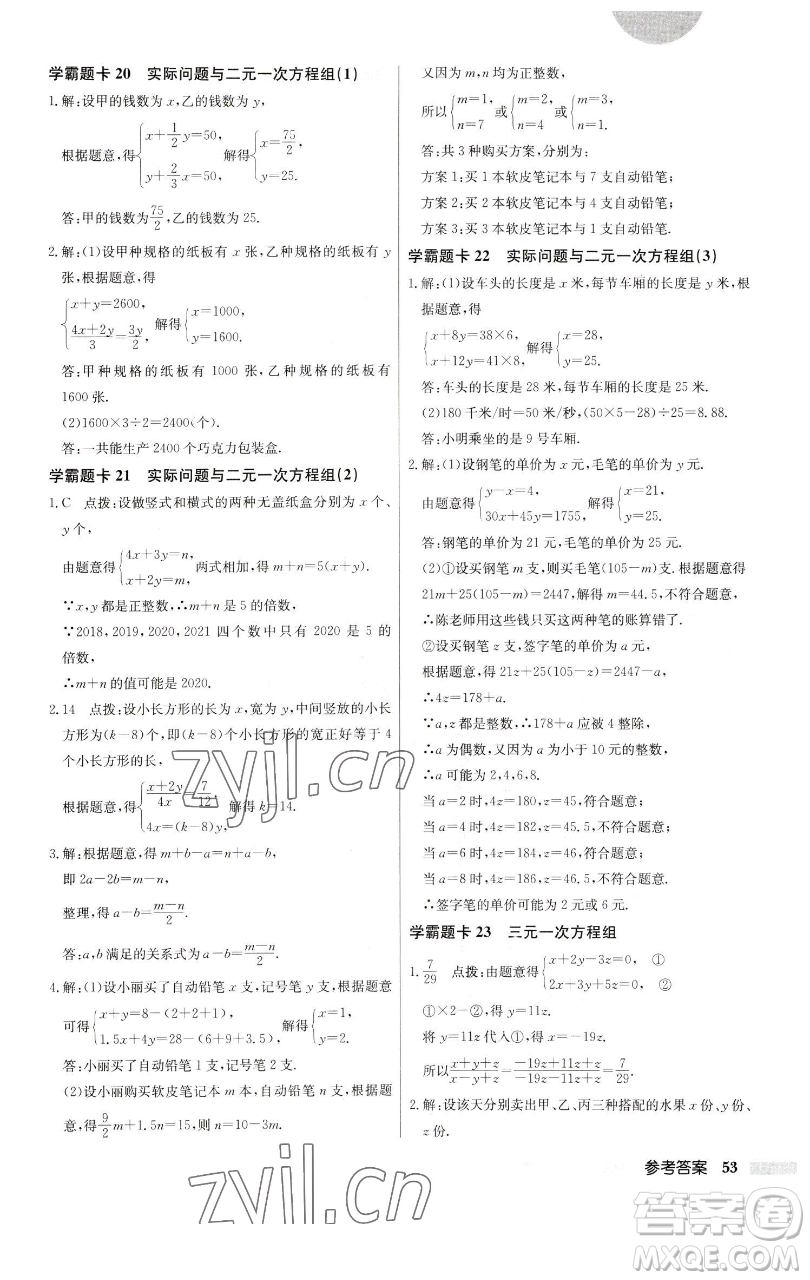 学霸题卡 20 实际问题与二元一次方程组(1)
1.解:设甲的钱数为 x,乙的钱数为 y,
根据题意,得{x+1/2 y=50, y+2/3 x=50. 解得{x=75/2, y=25.
答:甲的钱数为75/2,乙的钱数为 25.
2.解:(1)设甲种规格的纸板有 x 张,乙种规格的纸板有 y
张,根据题意,得
{x+y=2600, (4x+2y)/3=3y/2, 解得{x=1000, y=1600.
答:甲种规格的纸板有 1000 张,乙种规格的纸板有
1600 张.
(2)1600×3÷2=2400(个).
答:一共能生产 2400 个巧克力包装盒.
学霸题卡 21 实际问题与二元一次方程组(2)
1.C 点拨:设做竖式和横式的两种无盖纸盒分别为 x 个、
y 个,
由题意得{4x+3y=n, x+2y=m, 两式相加,得 m+n=5(x+y).
∵x,y 都是正整数,∴m+n 是 5 的倍数,
∵2018,2019,2020,2021 四个数中只有 2020 是 5 的
倍数,
∴m+n 的值可能是 2020.
2.14 点拨:设小长方形的长为 x,宽为 y,中间竖放的小长
方形为(k-8)个,即(k-8)个小长方形的宽正好等于 4
个小长方形的长,
根据题意,得{(x+2y)/4x=7/12, 4x=(k-8)y, 解得 k=14.
3.解:根据题意,得 m+b-a=n+a-b,
即 2a-2b=m-n,
整理,得 a-b=(m-n)/2.
答:a,b 满足的关系式为 a-b=(m-n)/2.
4.解:(1)设小丽买了自动铅笔 x 支,记号笔 y 支,根据题意
可得{x+y=8-(2+2+1), 1.5x+4y=28-(6+9+3.5), 解得{x=1, y=2.
答:小丽买了自动铅笔 1 支,记号笔 2 支.
(2)设小丽购买软皮笔记本 m 本,自动铅笔 n 支,根据题
意,得9/2 m+1.5n=15,则 n=10-3m.
又因为 m,n 均为正整数,
所以{m=1, n=7 或{m=2, n=4 或{m=3, n=1.
答:共 3 种购买方案,分别为:
方案 1:买 1 本软皮笔记本与 7 支自动铅笔;
方案 2:买 2 本软皮笔记本与 4 支自动铅笔;
方案 3:买 3 本软皮笔记本与 1 支自动铅笔.
学霸题卡 22 实际问题与二元一次方程组(3)
1.解:(1)设车头的长度是 x 米,每节车厢的长度是 y 米,根
据题意,得
{x+8y=38×6, x+12y=41×8, 解得{x=28, y=25.
答:车头的长度是 28 米,每节车厢的长度是 25 米.
(2)180 千米/时=50 米/秒,(50×5-28)÷25=8.88.
答:小明乘坐的是 9 号车厢.
2.解:(1)设钢笔的单价为 x 元,毛笔的单价为 y 元,
由题意得{y-x=4, 30x+45y=1755, 解得{x=21, y=25.
答:钢笔的单价为 21 元,毛笔的单价为 25 元.
(2)①设买钢笔 m 支,则买毛笔(105-m)支.根据题意得
21m+25(105-m)=2447,解得 m=44.5,不符合题意,
∴陈老师用这些钱只买这两种笔的账算错了.
②设买钢笔 z 支,签字笔的单价为 a 元,
根据题意,得 21z+25(105-z)=2447-a,
∴4z=178+a.
∵a,z 都是整数,∴178+a 应被 4 整除,
∴a 为偶数,又因为 a 为小于 10 元的整数,
∴a 可能为 2,4,6,8.
当 a=2 时,4z=180,z=45,符合题意;
当 a=4 时,4z=182,z=45.5,不符合题意;
当 a=6 时,4z=184,z=46,符合题意;
当 a=8 时,4z=186,z=46.5,不符合题意.
∴签字笔的单价可能为 2 元或 6 元.
学霸题卡 23 三元一次方程组
1.7/29 点拨:由题意得{x+2y-3z=0, ① 2x+3y+5z=0, ②
①×2-②,得 y=11z.
将 y=11z 代入①,得 x=-19z.
所以(x+y)/(x-y+z)=(-19z+11z)/(-19z-11z+z)=7/29.
2.解:设该天分别卖出甲、乙、丙三种搭配的水果 x 份、y 份、
z 份.
参考答案 53
zyjl.cn
zyjl.cn
答案圈
MXQE.COM